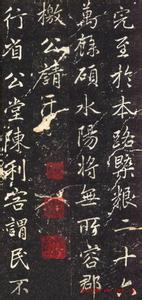 完至於本路槩粮二十六
萬餘碩水陽將無所容郡
檄公請于
行省公堂陳利害謂民不